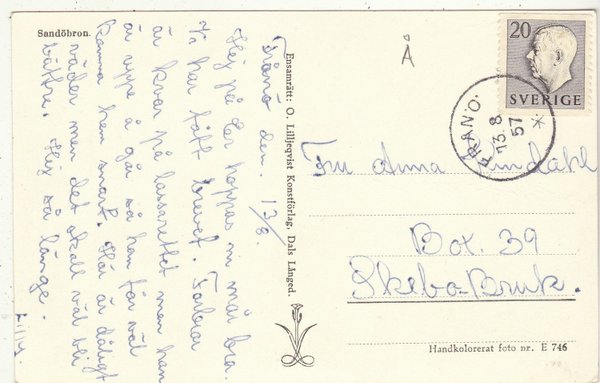 Sandöbron.
Fränö den. 13/8.
Hej på Er hoppas ni mår bra.
Vi har fått brevet. Farfar
är kvar på lassarettet men han
är oppe å gå så han får väl
komma hem snart. Här är dåligt
väder men det skall väl bli
bättre. Hej så länge.
Ensamrätt: O. Lilljeqvist Konstförlag, Dals Långed.
Å
20
SVERIGE
FRÄNÖ.
13 8
57
*
Anna Lindahl
Box. 39
Skebo-Bruk.
Handkolorerat foto nr. E 746